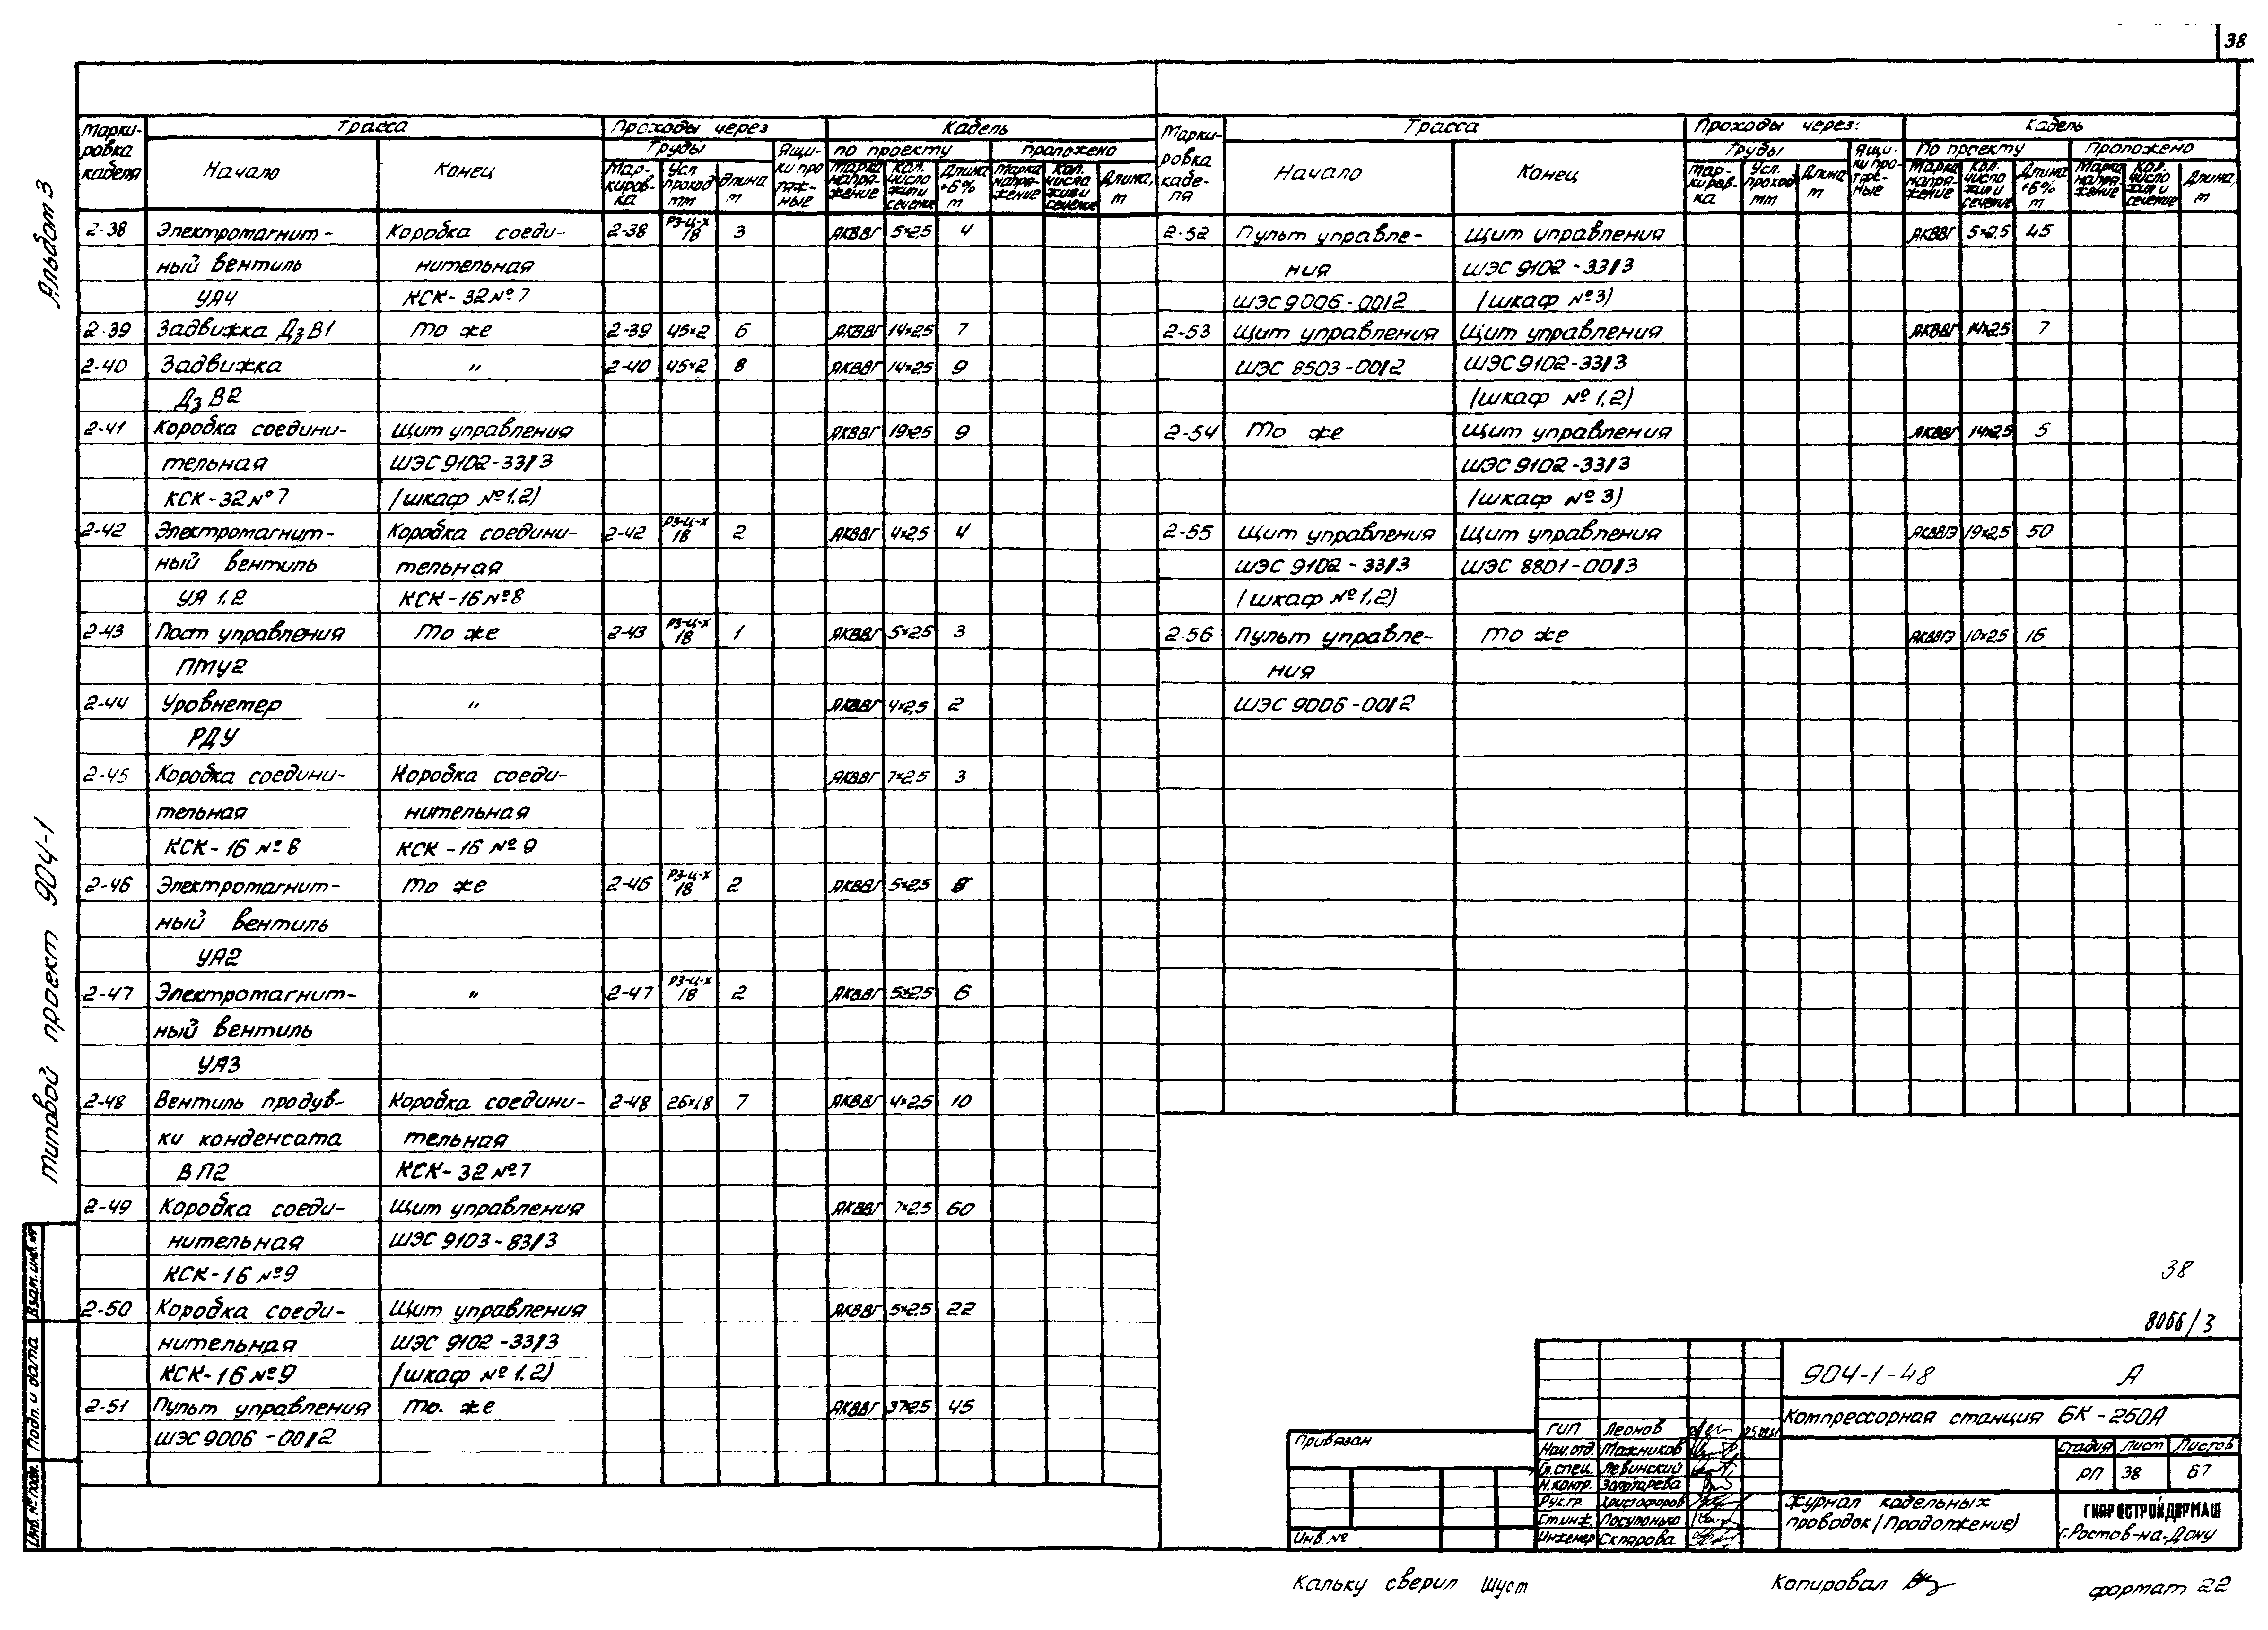 38
Альбом 3
Типовой проект 904-1
Марки-ровка кабеля | Трасса | Проходы через | Кабель
Начало | Конец | Трубы | Ящи-ки про тяж-ные | по проекту | проложено
Мар-киров-ка | Усл проход мм | Длина м | Марка напря-жение | Кол. число жил и сечение | Длина +6% м | Марка напря-жение | Кол. число жил и сечение | Длина, м
2-38 Электромагнит- Коробка соеди- 2-38 РЗ-Ц-Х 18 3 АКВВГ 5×2,5 4
ный вентиль нительная
УА4 КСК-32 №7
2-39 Задвижка ДзВ1 То же 2-39 45×2 6 АКВВГ 14×2,5 7
2-40 Задвижка " 2-40 45×2 8 АКВВГ 14×2,5 9
ДзВ2
2-41 Коробка соедини- Щит управления АКВВГ 19×2,5 9
тельная ШЭС 9102-33/3
КСК-32 №7 (шкаф №1,2)
2-42 Электромагнит- Коробка соедини- 2-42 РЗ-Ц-Х 18 2 АКВВГ 4×2,5 4
ный вентиль тельная
УА 1,2 КСК-16 №8
2-43 Пост управления То же 2-43 РЗ-Ц-Х 18 1 АКВВГ 5×2,5 3
ПМУ2
2-44 Уровнемер " АКВВГ 4×2,5 2
РДУ
2-45 Коробка соедини- Коробка соеди- АКВВГ 7×2,5 3
тельная нительная
КСК-16 №8 КСК-16 №9
2-46 Электромагнит- То же 2-46 РЗ-Ц-Х 18 2 АКВВГ 5×2,5
ный вентиль
УА2
2-47 Электромагнит- " 2-47 РЗ-Ц-Х 18 2 АКВВГ 5×2,5 6
ный вентиль
УА3
2-48 Вентиль продув- Коробка соедини- 2-48 26×1,8 7 АКВВГ 4×2,5 10
ки конденсата тельная
ВП2 КСК-32 №7
2-49 Коробка соеди- Щит управления АКВВГ 7×2,5 60
нительная ШЭС 9103-83/3
КСК-16 №9
2-50 Коробка соеди- Щит управления АКВВГ 5×2,5 22
нительная ШЭС 9102-33/3
КСК-16 №9 (шкаф №1,2)
2-51 Пульт управления То же АКВВГ 37×2,5 45
ШЭС 9006-00/2
Марки-ровка кабе-ля | Трасса | Проходы через: | Кабель
Начало | Конец | Трубы | Ящи-ки про-тяж-ные | По проекту | Проложено
Мар-киров-ка | Усл. проход мм | Длина м | Марка напря-жение | Кол. число жил и сечение | Длина +6% м | Марка напря-жение | Кол. число жил и сечение | Длина, м
2-52 Пульт управле- Щит управления АКВВГ 5×2,5 45
ния ШЭС 9102-33/3
ШЭС 9006-00/2 (шкаф №3)
2-53 Щит управления Щит управления АКВВГ 14×2,5 7
ШЭС 8503-00/2 ШЭС 9102-33/3
(шкаф №1,2)
2-54 То же Щит управления АКВВГ 14×2,5 5
ШЭС 9102-33/3
(шкаф №3)
2-55 Щит управления Щит управления АКВВГЭ 19×2,5 50
ШЭС 9102-33/3 ШЭС 8801-00/3
(шкаф №1,2)
2-56 Пульт управле- То же АКВВГЭ 10×2,5 16
ния
ШЭС 9006-00/2
38
8066/3
904-1-48 А
Компрессорная станция 6К-250А
Привязан
Инв. №
ГИП Леонов
Нач. отд. Мажников
Гл. спец. Левинский
Н. контр. Золотарева
Рук. гр. Христофоров
Ст. инж. Посупонько
Инженер Склярова
Стадия Лист Листов
РП 38 67
Журнал кабельных
проводок (Продолжение)
ГИПРОСТРОЙДОРМАШ
г. Ростов-на-Дону
Взам. инв. №
Подп. и дата
Инв. № подл.
Кальку сверил Шуст
Копировал
формат 22